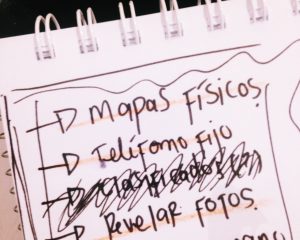 Mapas físicos
Teléfono fijo
Revelar fotos.